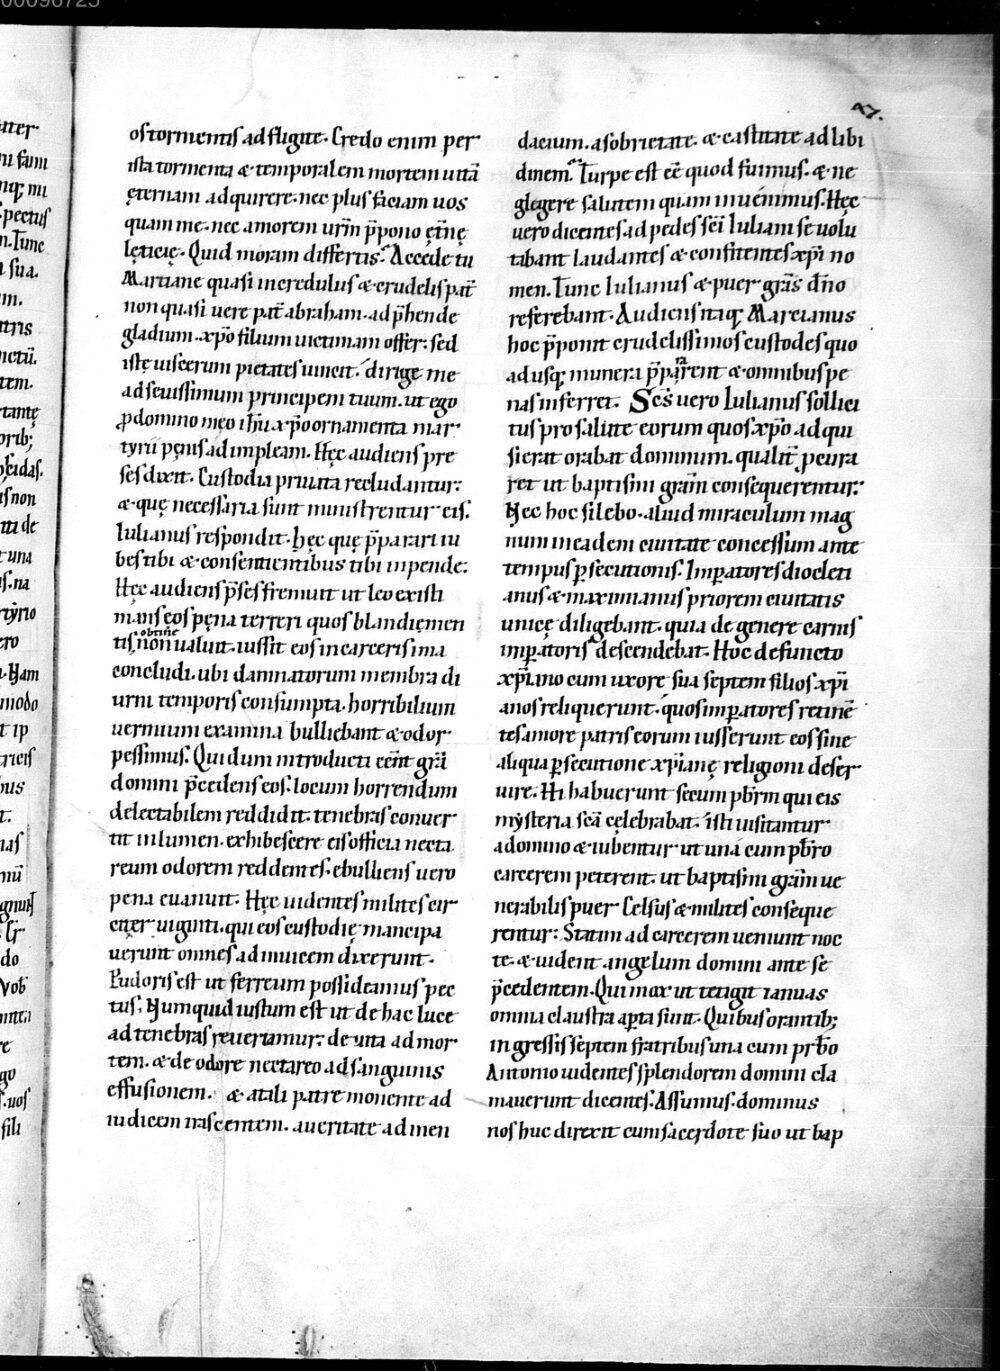 00096725
47.
os tormentis adfligite. Credo enim per
ista tormenta & temporalem mortem uitā
ęternam adquirere. nec plus faciam uos
quam me. nec amorem ur̄m p̄pono ęt̄nę
lęticię. Quid moram differtis? Accede tu
Martiane quasi incredulus & crudelis pat̄
non quasi uere pat̄ abraham. adp̄hende
gladium. xp̄o filium uictimam offer. sed
istę uiscerum pietates uincit. dirige me
ad seuissimum principem tuum. ut ego
ꝓ domino meo ih̄u xp̄o ornamenta mar
tyrii pęnis adimpleam. Hęc audiens pre
ses dixit. Custodia priuata recludantur.
& quę necessaria sunt ministrentur eis.
Iulianus respondit. hęc quę p̄parari iu
bes tibi & consentientibus tibi inpende.
Hęc audiens p̄ses fremuit ut leo existi
mans eos pęna terreri quos blandięmen
tis obtinē non ualuit. iussit eos in carceris ima
concludi. ubi damnatorum membra di
urni temporis consumpta. horribilium
uermium examina bulliebant & odor
pessimus. Qui dum introducti eēnt grā
domini p̄cedens eos. locum horrendum
delectabilem reddidit. tenebras conuer
tit in lumen. exhibescere eis officia necta
reum odorem reddentes. ebulliens uero
pena euanuit. Hęc uidentes milites cir
citer uiginti. qui eos custodię mancipa
uerunt omnes ad inuicem dixerunt.
Pudoris est ut ferreum possideamus pec
tus. Numquid iustum est ut de hac luce
ad tenebras reuertamur. de uita ad mor
tem. & de odore nectareo ad sanguinis
effusionem. & a tali patre monente ad
iudicem irascentem. a ueritate ad men
dacium. a sobrietate. & castitate ad libi
dinem. Turpe est eē quod fuimus. & ne
glegere salutem quam inuenimus. Hęc
uero dicentes ad pedes sc̄i Iuliani se uolu
tabant laudantes & confitentes xp̄i no
men. Tunc Iulianus & puer grās dn̄o
referebant. Audiens itaq; Marcianus
hoc p̄ponit crudelissimos custodes quo
adusq; munera p̄pararent & omnibus pe
nas inferret. Sc̄s uero Iulianus sollici
tus pro salute eorum quos xp̄o adqui
sierat orabat dominum. qualit̄ pcura
ret ut baptismi grām consequerentur.
Nec hoc silebo. aliud miraculum mag
num in eadem ciuitate concessum ante
tempus ꝑsecutionis. Imperatores diocleti
anus & maximianus priorem ciuitatis
unicę diligebant. quia de genere carnis
imꝑatoris descendebat. Hoc defuncto
xp̄iano cum uxore sua septem filios xp̄i
anos reliquerunt. quos imꝑatores retinē
tes amore patris eorum iusserunt eos sine
aliqua ꝑsecutione xp̄ianę religioni deser
uire. Hi habuerunt secum pbr̄m qui eis
mysteria sc̄a celebrabat. isti uisitantur
a domino & iubentur ut una cum pb̄ro
carcerem peterent. ut baptismi grām ue
nerabilis puer Celsus & milites conseque
rentur. Statim ad carcerem ueniunt noc
te. & uident angelum domini ante se
p̄cedentem. Qui mox ut tetigit ianuas
omnia claustra aꝑta sunt. Quibus orantib;
ingressis septem fratribus una cum prb̄o
Antonio uidentes splendorem domini cla
mauerunt dicentes. Assumus. dominus
nos huc direxit cum sacerdote suo ut bap